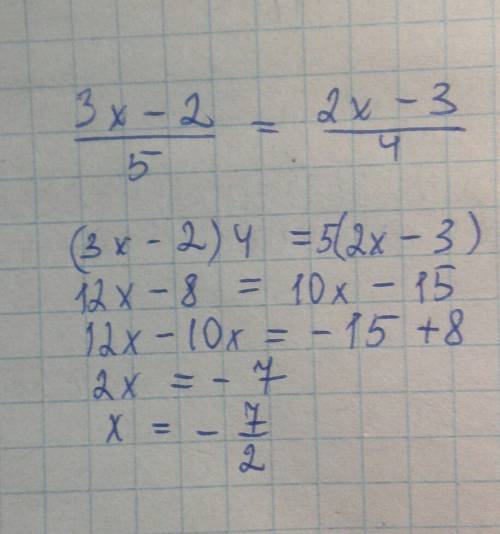 3x - 2 / 5 = 2x - 3 / 4
(3x - 2) 4 = 5(2x - 3)
12x - 8 = 10x - 15
12x - 10x = - 15 + 8
2x = - 7
x = - 7/2